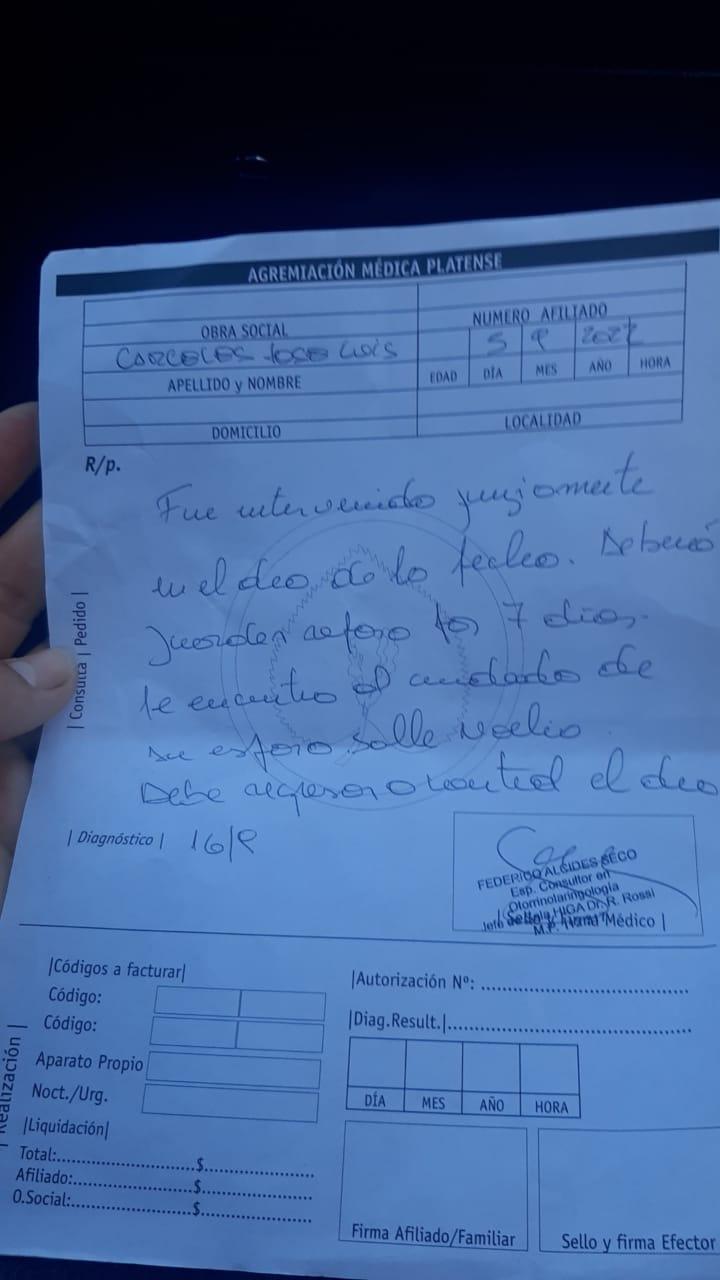 AGREMIACIÓN MÉDICA PLATENSE
OBRA SOCIAL
NUMERO AFILIADO
CARCELES JOSE LUIS
5 9 2022
APELLIDO y NOMBRE
EDAD DÍA MES AÑO HORA
DOMICILIO
LOCALIDAD
R/p.
Fue intervenido
en el dia de la fecha. Deberá
guardar reposo por 7 dias.
Se encuentra al cuidado de
su esposa
Debe regresar a control el dia
| Consulta | Pedido |
| Diagnóstico | 16/9
FEDERICO ALCIDES SECO
Esp. Consultor en
Otorrinolaringología
HIGA Dr. R. Rossi
Médico |
|Códigos a facturar|
Código:
Código:
Aparato Propio
Noct./Urg.
|Liquidación|
Total:..............................$......................
Afiliado:..........................$......................
O.Social:.........................$......................
|Autorización Nº: .......................................
|Diag.Result.|.............................................
DÍA MES AÑO HORA
Firma Afiliado/Familiar
Sello y firma Efector
| Realización |